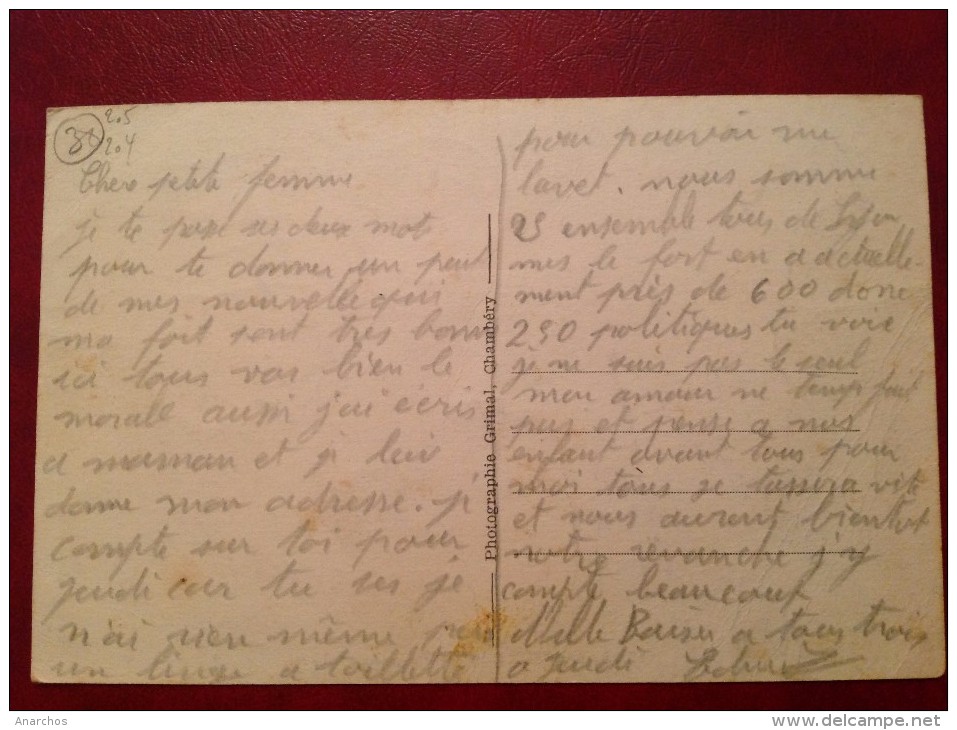 38
2.5
2.4
Chere petite femme
je te pose ses deux mots
pour te donner un peut
de mes nouvelle qui
ma foit sont très bonne
ici tous vas bien le
morall aussi j'ai écris
a maman et je lui
donne mon adresse. je
compte sur toi pour
jeudi car tu ses je
n'ai rien même pas
un linge a toillette
Photographie Grimal, Chambéry
pour pouvoir me
lavet. nous somme
25 ensemble tous de Lyon
mes le fort en a actuelle-
ment près de 600 donc
230 politiques tu vois
je ne suis pas le seul
mon amour ne temps fait
pas et pense a nos
enfant avant tous pour
moi tous se passera vite
et nous auront bientot
notre revanche j'y
compte beaucoup
Mille Baiser a tous trois
a jeudi
Anarchos
www.delcampe.net